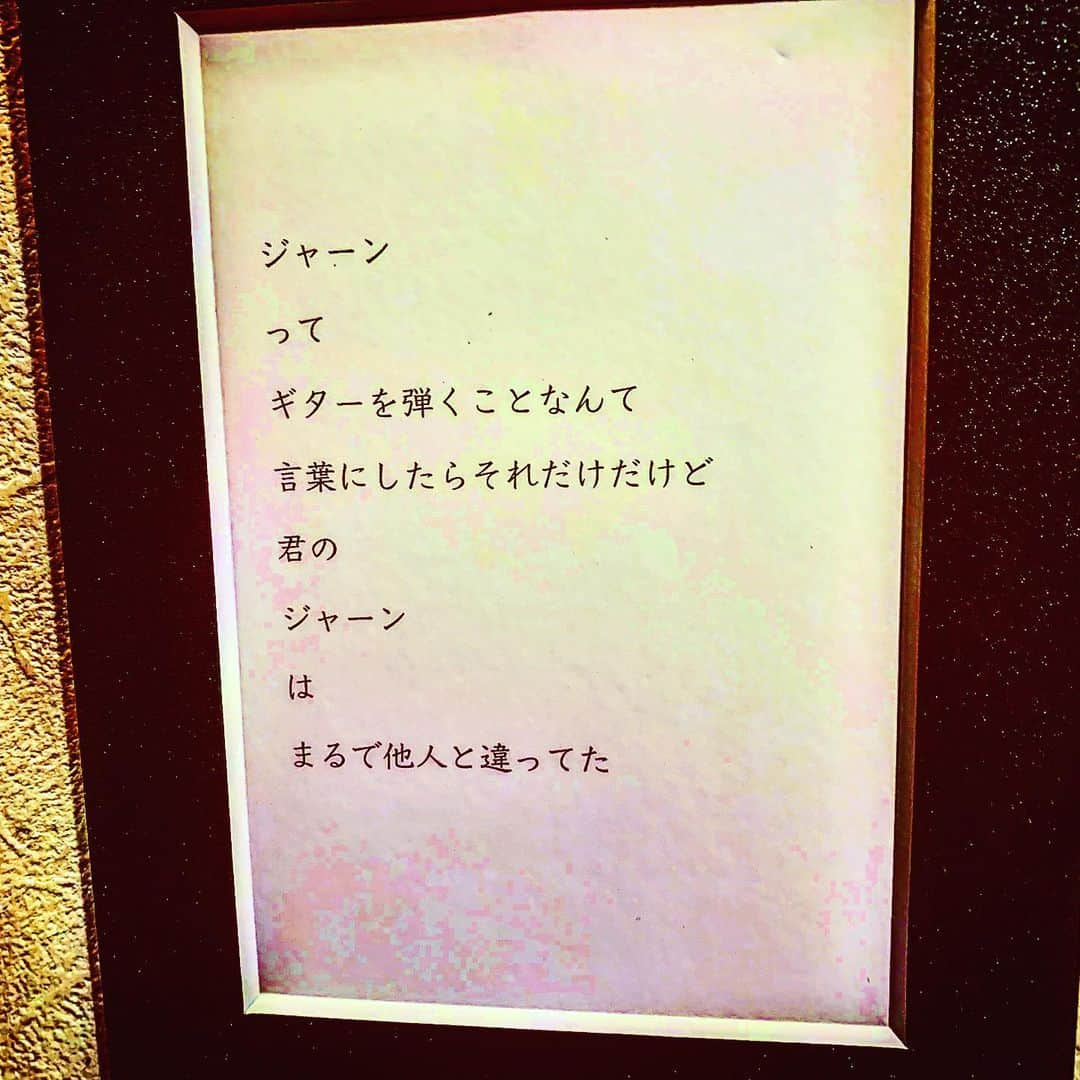 ジャーン
って
ギターを弾くことなんて
言葉にしたらそれだけだけど
君の
ジャーン
は
まるで他人と違ってた